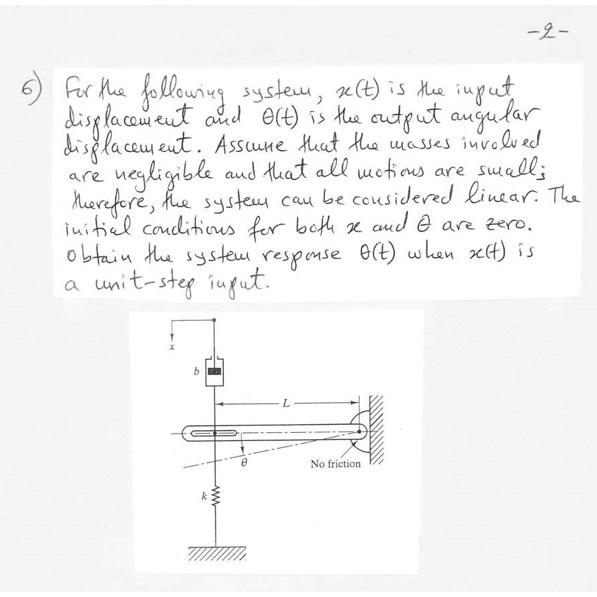 -2-
6) For the following system, x(t) is the input
displacement and θ(t) is the output angular
displacement. Assume that the masses involved
are negligible and that all motions are small;
therefore, the system can be considered linear. The
initial conditions for both x and θ are zero.
Obtain the system response θ(t) when x(t) is
a unit-step input.
x
b
L
θ
No friction
k